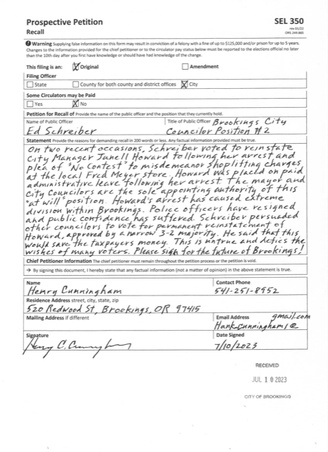 Prospective Petition
SEL 350
Recall
Warning Supplying false information on this form may result in conviction of a felony with a fine of up to $125,000 and/or prison for up to 5 years.
Changes to the information provided for the chief petitioner or to the circulator pay status below must be reported to the elections official no later than the 10th day after you first have knowledge or should have had knowledge of the change.
This filing is an: X Original Amendment
Filing Officer
State County for both county and district offices X City
Some Circulators may be Paid
Yes X No
Petition for Recall of Provide the name of the public officer and the position that they currently hold.
Name of Public Officer
Title of Public Officer Brookings City
Ed Schreiber Councilor Position #2
Statement Provide the reasons for demanding recall in 200 words or less. Any factual information provided must be true.
On two recent occasions, Schreiber voted to reinstate
City Manager Janell Howard following her arrest and
plea of "No Contest" to misdemeanor shoplifting charges,
at the local Fred Meyer store. Howard was placed on paid
administrative leave following her arrest. The mayor and
City Councilors are the sole appointing authority of this
"at will" position. Howard's arrest has caused extreme
division within Brookings. Police officers have resigned
and public confidence has suffered. Schreiber persuaded
other councilors to vote for permanent reinstatement of
Howard, approved by a narrow 3-2 majority. He said that this
would save the taxpayers money. This is untrue and defies the
wishes of many voters. Please sign for the future of Brookings!
Chief Petitioner Information The chief petitioner must remain throughout the petition process or the petition is void.
By signing this document, I hereby state that any factual information (not a matter of opinion) in the above statement is true.
Name Contact Phone
Henry Cunningham 541-251-8952
Residence Address street, city, state, zip
520 Redwood St, Brookings, OR 97415
Mailing Address if different Email Address gmail.com
Hankcunninghams@
Signature Date Signed
Henry C. Cunningham 7/10/2023
RECEIVED
JUL 10 2023
CITY OF BROOKINGS